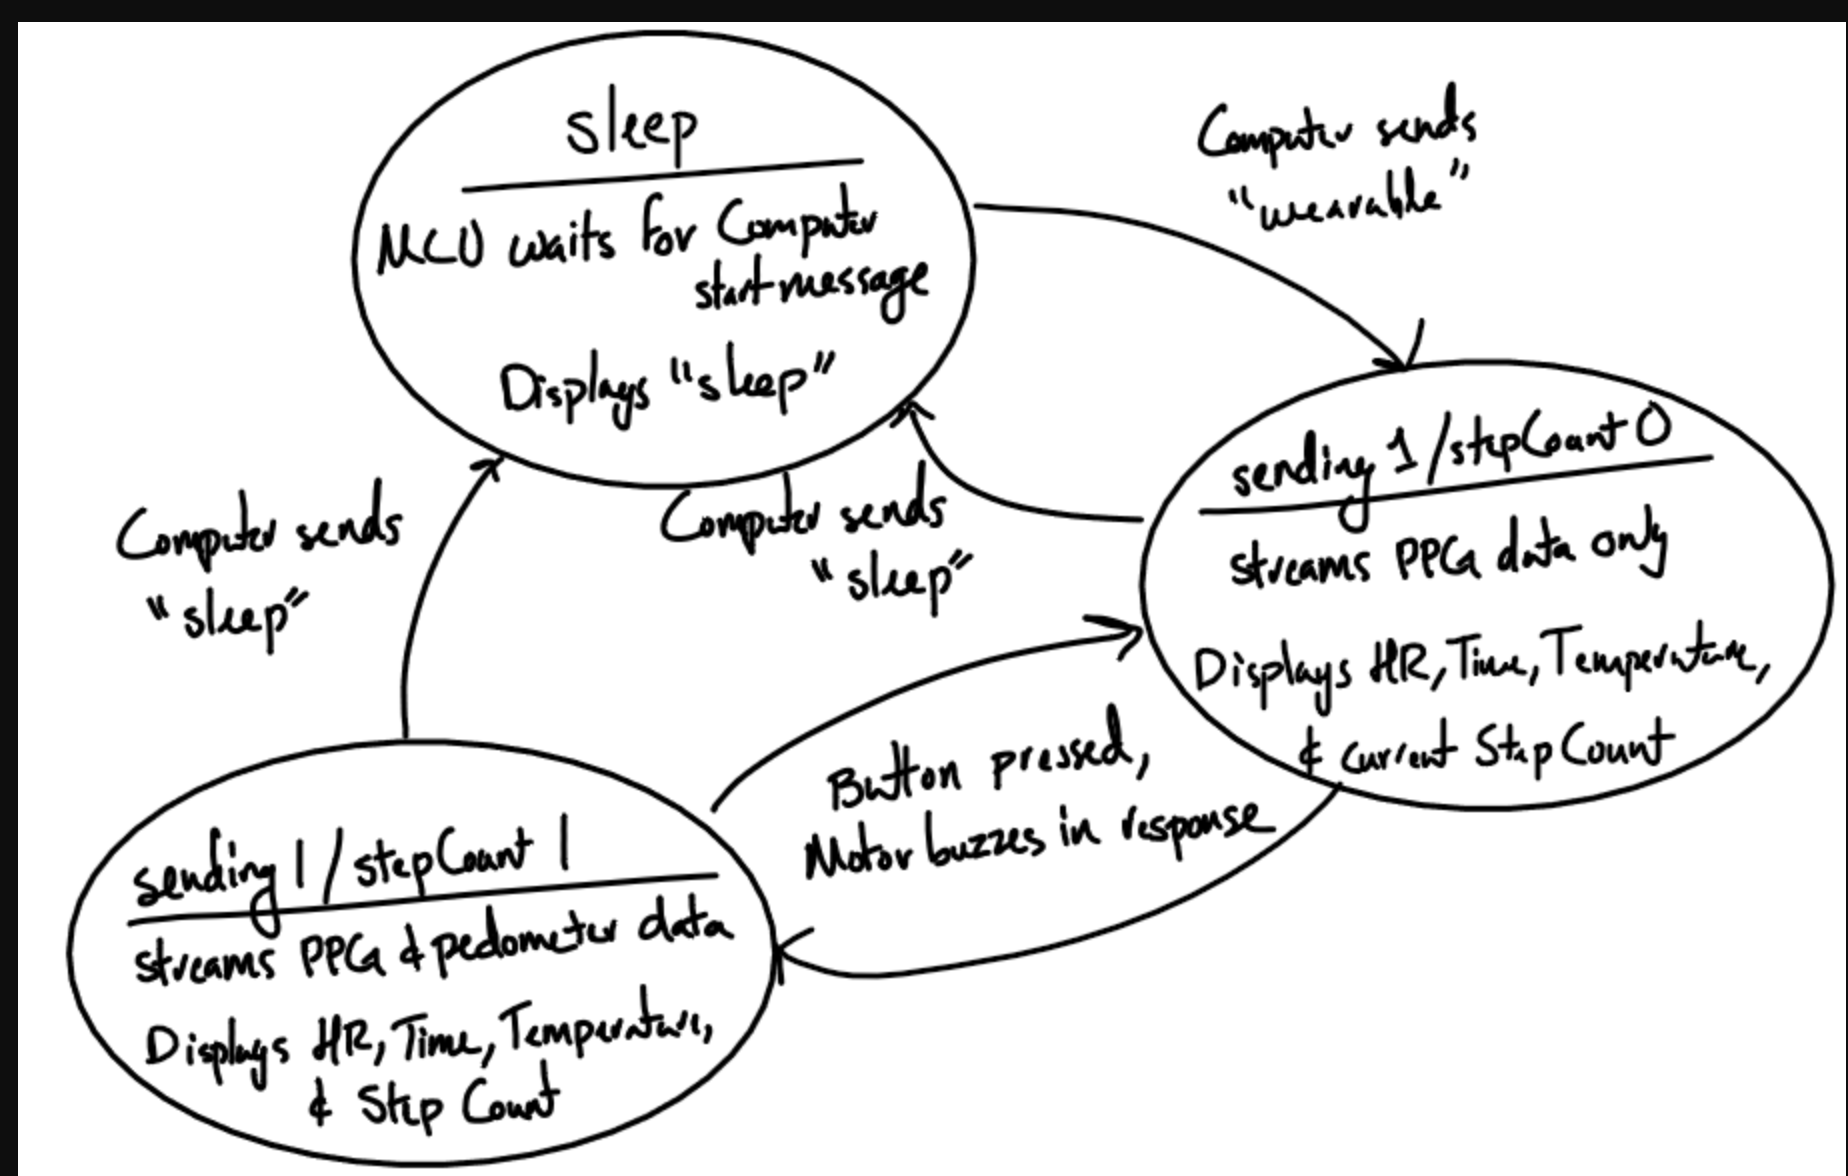 sleep
MCU waits for Computer
start message
Displays "sleep"
Computer sends
"wearable"
sending 1/stepCount 0
streams PPG data only
Displays HR, Time, Temperature,
& current Step Count
Computer sends
"sleep"
Computer sends
"sleep"
Button pressed,
Motor buzzes in response
sending 1/stepCount 1
streams PPG & pedometer data
Displays HR, Time, Temperature,
& Step Count